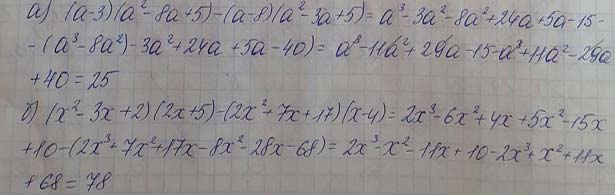 а) (a-3)(a²-8a+5)-(a-8)(a²-3a+5)= a³-3a²-8a²+24a+5a-15-
-(a³-8a²)-3a²+24a+5a-40)= a³-11a²+29a-15-a³+11a²-29a
+40=25
б) (x²-3x+2)(2x+5)-(2x²+7x+17)(x-4)= 2x³-6x²+4x+5x²-15x
+10-(2x³+7x²+17x-8x²-28x-68)= 2x³-x²-11x+10-2x³+x²+11x
+68=78